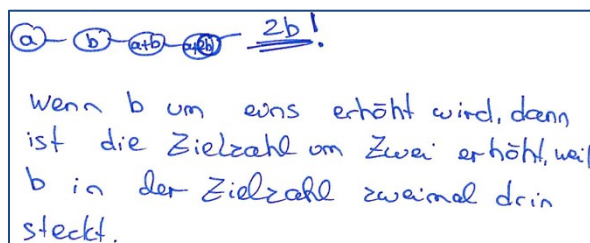 a b a+b a+2b 2b!
wenn b um eins erhöht wird, dann
ist die Zielzahl um zwei erhöht, weil
b in der Zielzahl zweimal drin
steckt.